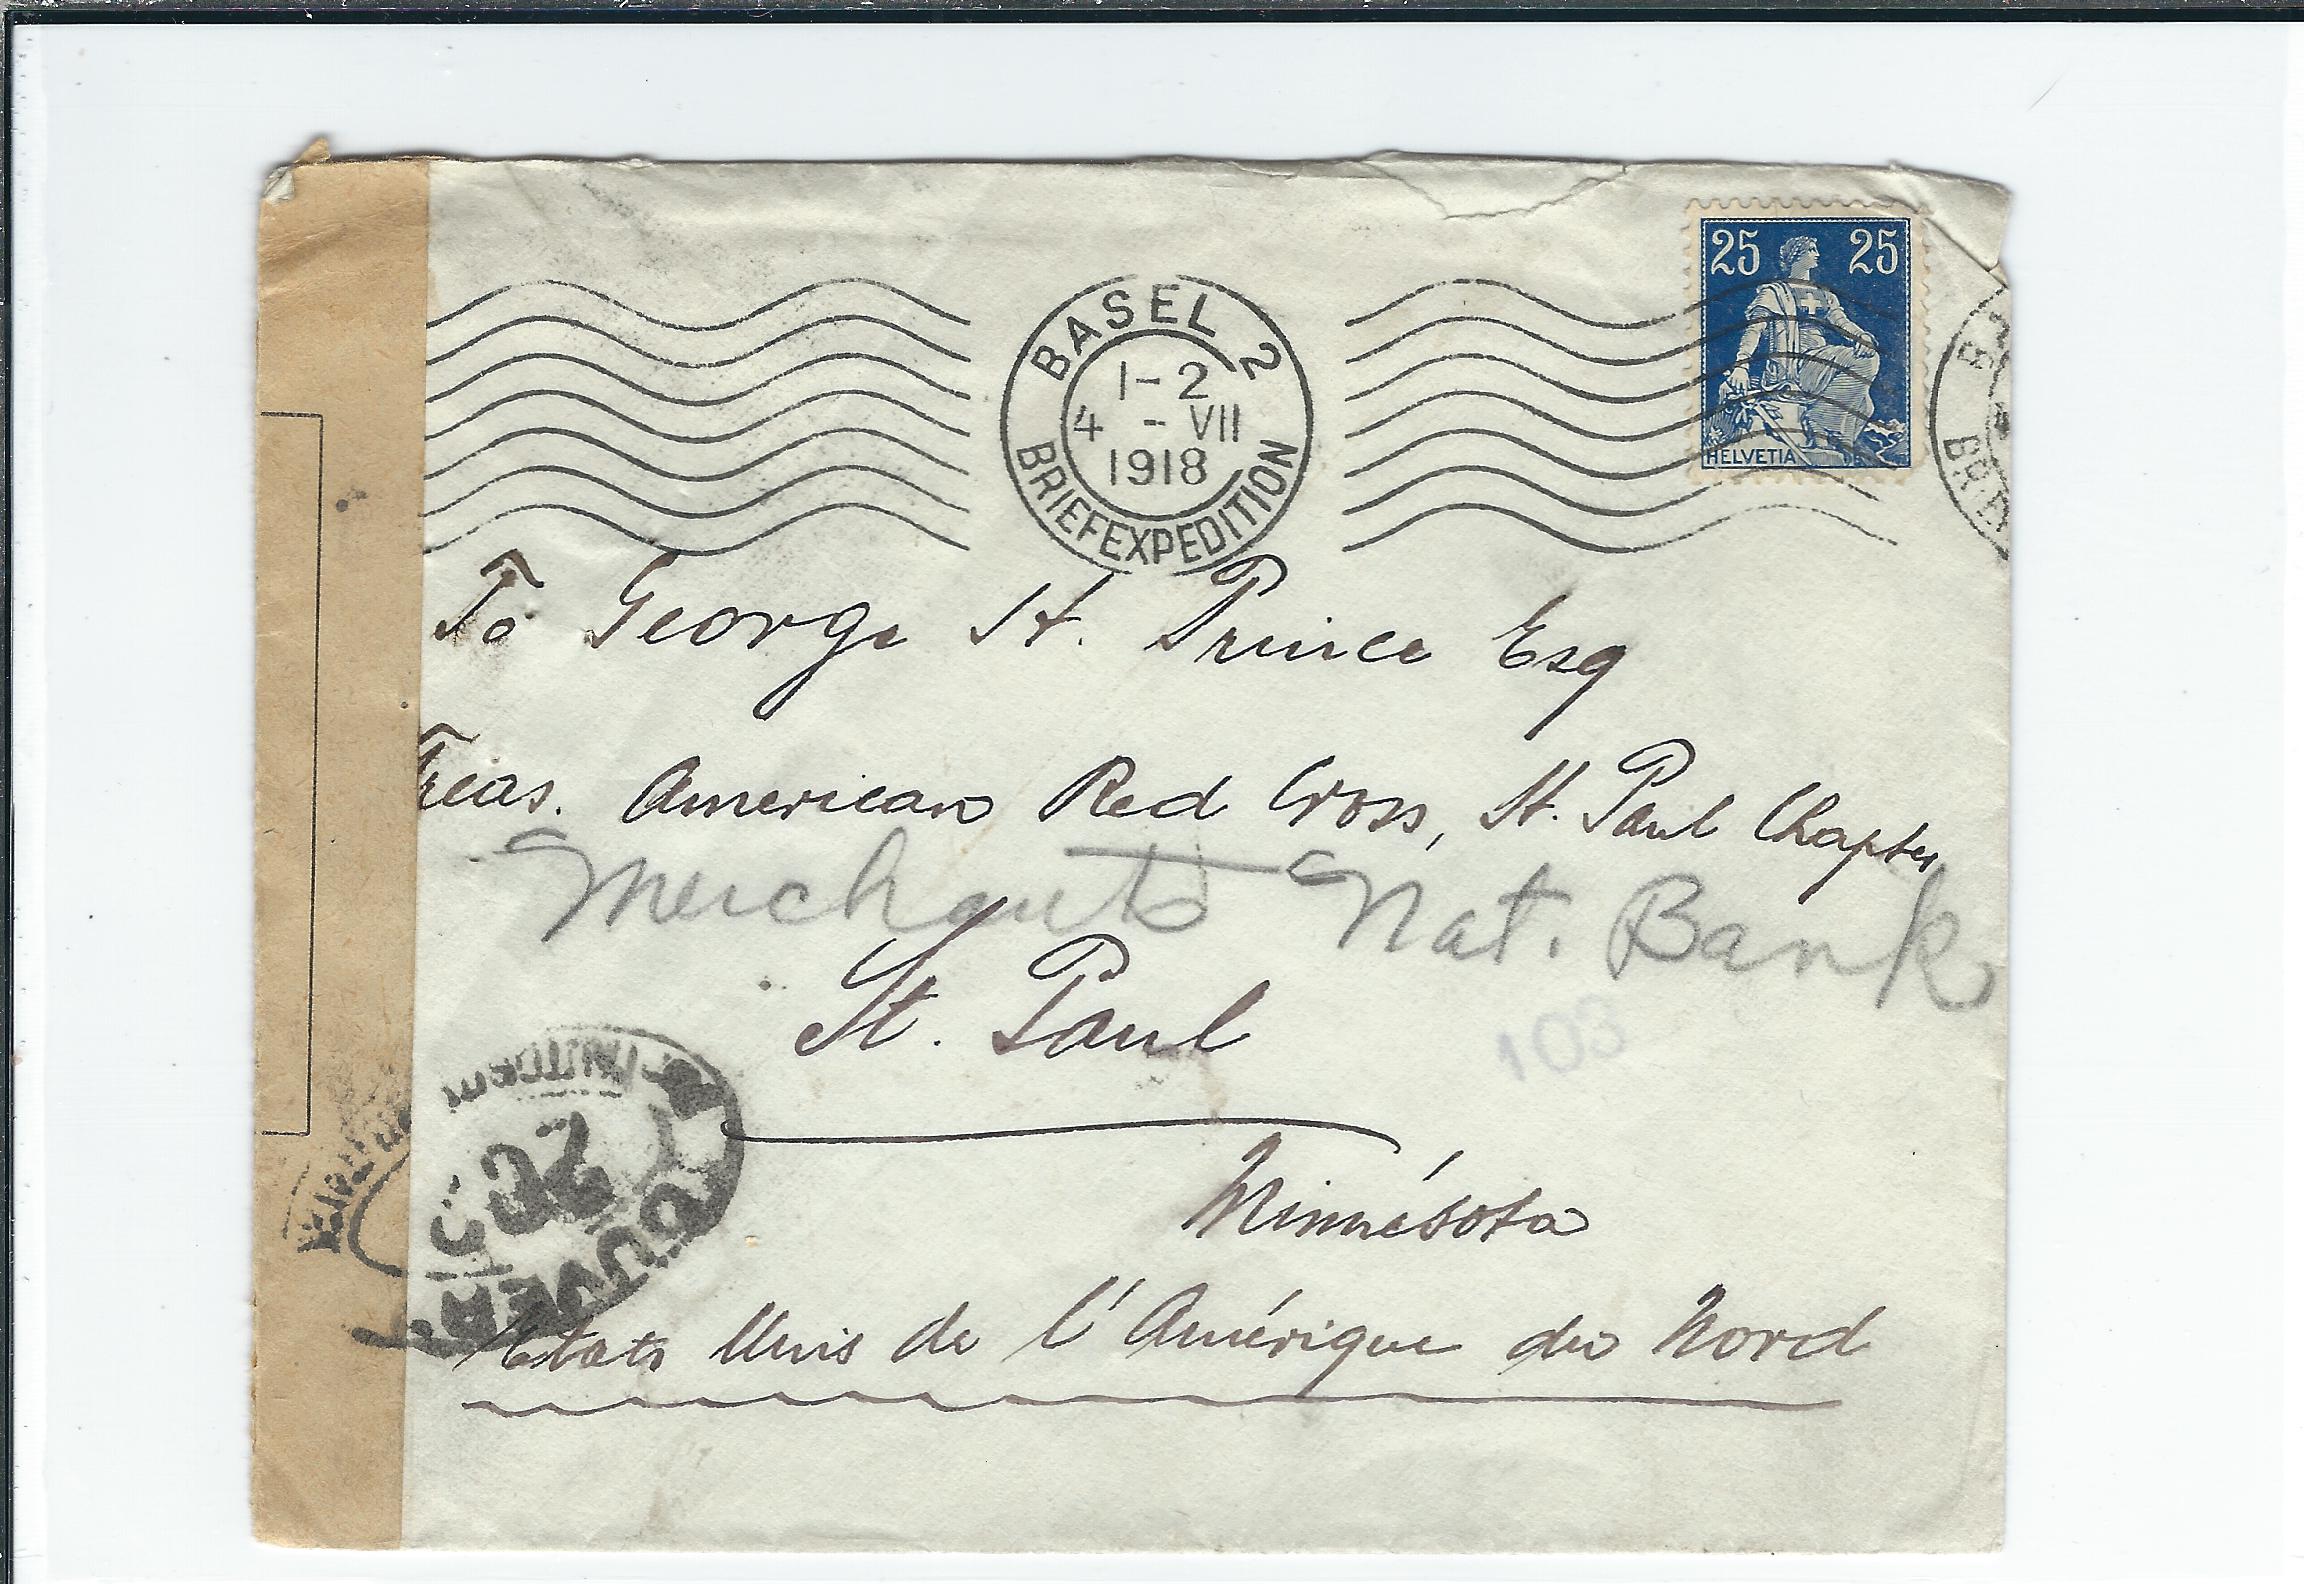 25 25
HELVETIA
BASEL 2
1-2
4 - VII
1918
BRIEFEXPEDITION
To George H. Prince Esq
Treas. American Red Cross, St. Paul Chapter
Merchants Nat. Bank
St. Paul
103
Minnésota
Etats Unis de l'Amérique du Nord
OUVERT